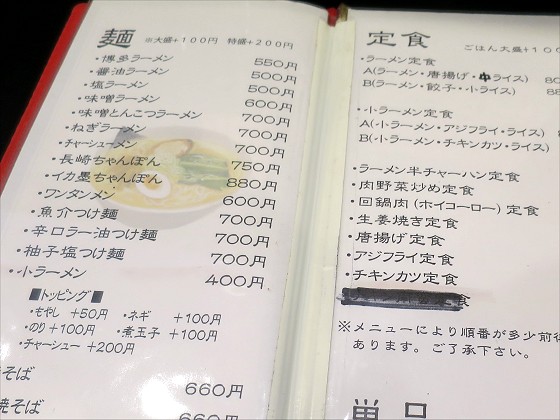 麺 ※大盛+100円 特盛+200円
・博多ラーメン 550円
・醤油ラーメン 500円
・塩ラーメン 500円
・味噌ラーメン 600円
・味噌とんこつラーメン 700円
・ねぎラーメン 700円
・チャーシューメン 700円
・長崎ちゃんぽん 750円
・イカ墨ちゃんぽん 880円
・ワンタンメン 600円
・魚介つけ麺 700円
・辛口ラー油つけ麺 700円
・柚子塩つけ麺 700円
・小ラーメン 400円
■トッピング■
・もやし +50円 ・ネギ +100円
・のり +100円 ・煮玉子 +100円
・チャーシュー +200円
そば 660円
焼そば 660円
定食 ごはん大盛+100
・ラーメン定食
A(ラーメン・唐揚げ・中ライス) 80
B(ラーメン・餃子・小ライス) 88
・小ラーメン定食
A(小ラーメン・アジフライ・ライス)
B(小ラーメン・チキンカツ・ライス)
・ラーメン半チャーハン定食
・肉野菜炒め定食
・回鍋肉(ホイコーロー)定食
・生姜焼き定食
・唐揚げ定食
・アジフライ定食
・チキンカツ定食
食
※メニューにより順番が多少前後
あります。ご了承下さい。
単品